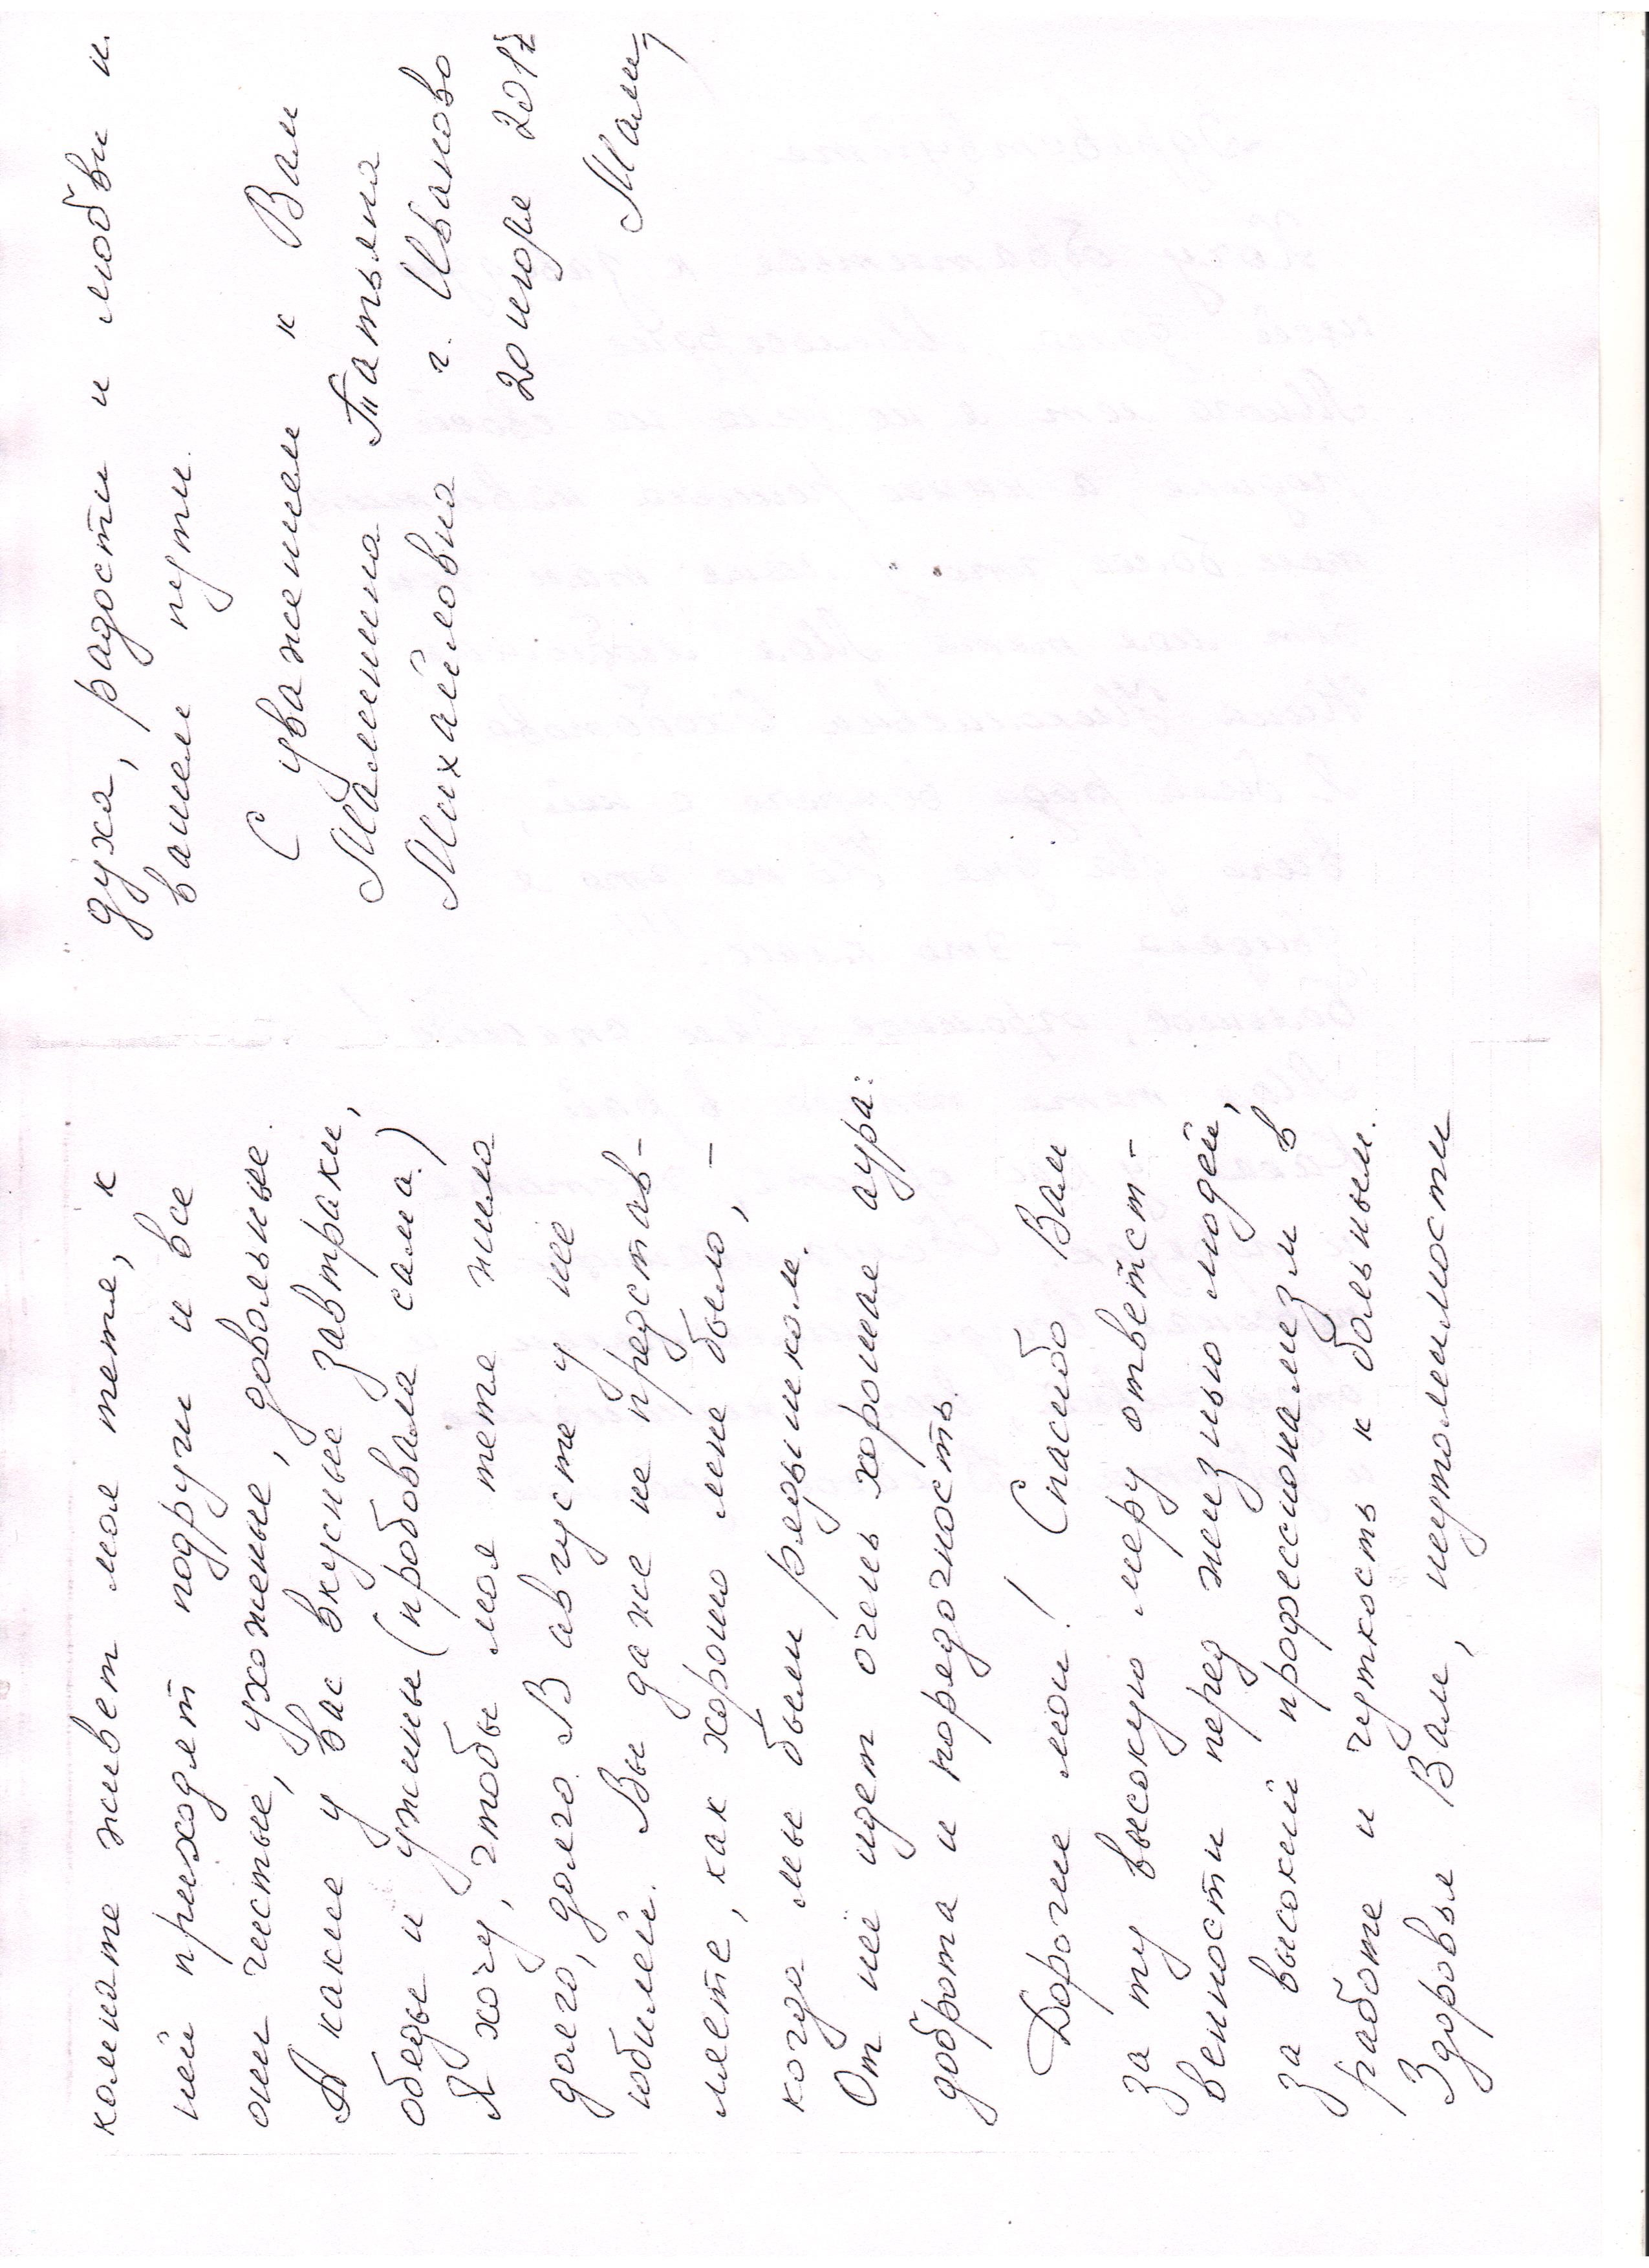 комнате живет моя тетя, к
ней приходят подруги и все
они чистые, ухоженные, довольные.
А какие у вас вкусные завтраки,
обеды и ужины (пробовала сама.)
Я хочу, чтобы моя тетя жила
долго, долго. В августе у неё
юбилей. Вы даже не представ-
ляете, как хорошо мне было, –
когда мы были рядышком.
От неё идет очень хорошая аура:
доброта и порядочность.
Дорогие мои! Спасибо Вам
за ту высокую меру ответст-
венности перед жизнью людей,
за высокий профессионализм в
работе и чуткость к больным.
Здоровья Вам, неутомимости
духа, радости и любви и
вашем пути.
С уважением к Вам
Малинина Татьяна
Михайловна г. Иваново
20 июля 2017